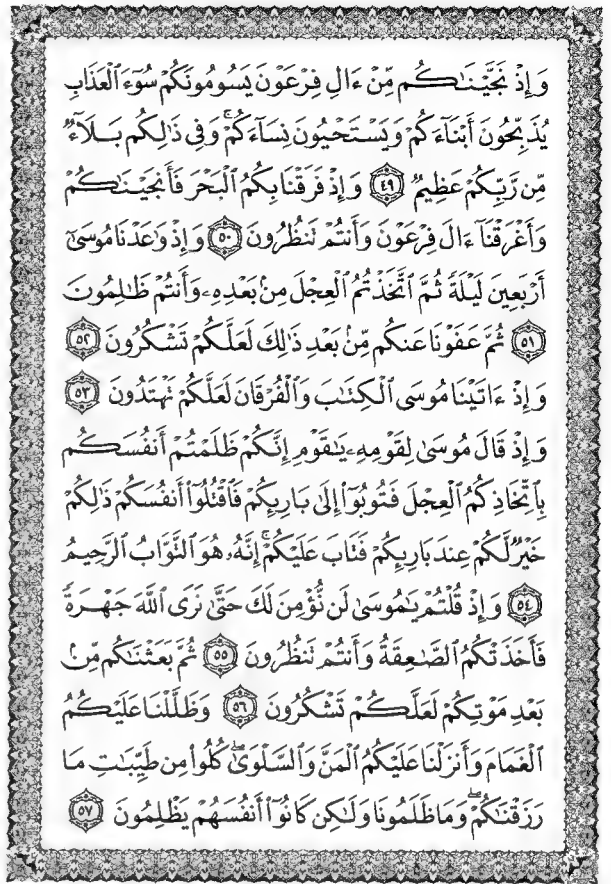 وَإِذْ نَجَّيْنَـٰكُم مِّنْ ءَالِ فِرْعَوْنَ يَسُومُونَكُمْ سُوٓءَ ٱلْعَذَابِ
يُذَبِّحُونَ أَبْنَآءَكُمْ وَيَسْتَحْيُونَ نِسَآءَكُمْ ۚ وَفِى ذَٰلِكُم بَلَآءٌ
مِّن رَّبِّكُمْ عَظِيمٌ ٤٩ وَإِذْ فَرَقْنَا بِكُمُ ٱلْبَحْرَ فَأَنجَيْنَـٰكُمْ
وَأَغْرَقْنَآ ءَالَ فِرْعَوْنَ وَأَنتُمْ تَنظُرُونَ ٥٠ وَإِذْ وَٰعَدْنَا مُوسَىٰٓ
أَرْبَعِينَ لَيْلَةً ثُمَّ ٱتَّخَذْتُمُ ٱلْعِجْلَ مِنۢ بَعْدِهِۦ وَأَنتُمْ ظَـٰلِمُونَ
٥١ ثُمَّ عَفَوْنَا عَنكُم مِّنۢ بَعْدِ ذَٰلِكَ لَعَلَّكُمْ تَشْكُرُونَ ٥٢
وَإِذْ ءَاتَيْنَا مُوسَى ٱلْكِتَـٰبَ وَٱلْفُرْقَانَ لَعَلَّكُمْ تَهْتَدُونَ ٥٣
وَإِذْ قَالَ مُوسَىٰ لِقَوْمِهِۦ يَـٰقَوْمِ إِنَّكُمْ ظَلَمْتُمْ أَنفُسَكُم
بِٱتِّخَاذِكُمُ ٱلْعِجْلَ فَتُوبُوٓا۟ إِلَىٰ بَارِئِكُمْ فَٱقْتُلُوٓا۟ أَنفُسَكُمْ ذَٰلِكُمْ
خَيْرٌ لَّكُمْ عِندَ بَارِئِكُمْ فَتَابَ عَلَيْكُمْ ۚ إِنَّهُۥ هُوَ ٱلتَّوَّابُ ٱلرَّحِيمُ
٥٤ وَإِذْ قُلْتُمْ يَـٰمُوسَىٰ لَن نُّؤْمِنَ لَكَ حَتَّىٰ نَرَى ٱللَّهَ جَهْرَةً
فَأَخَذَتْكُمُ ٱلصَّـٰعِقَةُ وَأَنتُمْ تَنظُرُونَ ٥٥ ثُمَّ بَعَثْنَـٰكُم مِّنۢ
بَعْدِ مَوْتِكُمْ لَعَلَّكُمْ تَشْكُرُونَ ٥٦ وَظَلَّلْنَا عَلَيْكُمُ
ٱلْغَمَامَ وَأَنزَلْنَا عَلَيْكُمُ ٱلْمَنَّ وَٱلسَّلْوَىٰ ۖ كُلُوا۟ مِن طَيِّبَـٰتِ مَا
رَزَقْنَـٰكُمْ ۖ وَمَا ظَلَمُونَا وَلَـٰكِن كَانُوٓا۟ أَنفُسَهُمْ يَظْلِمُونَ ٥٧